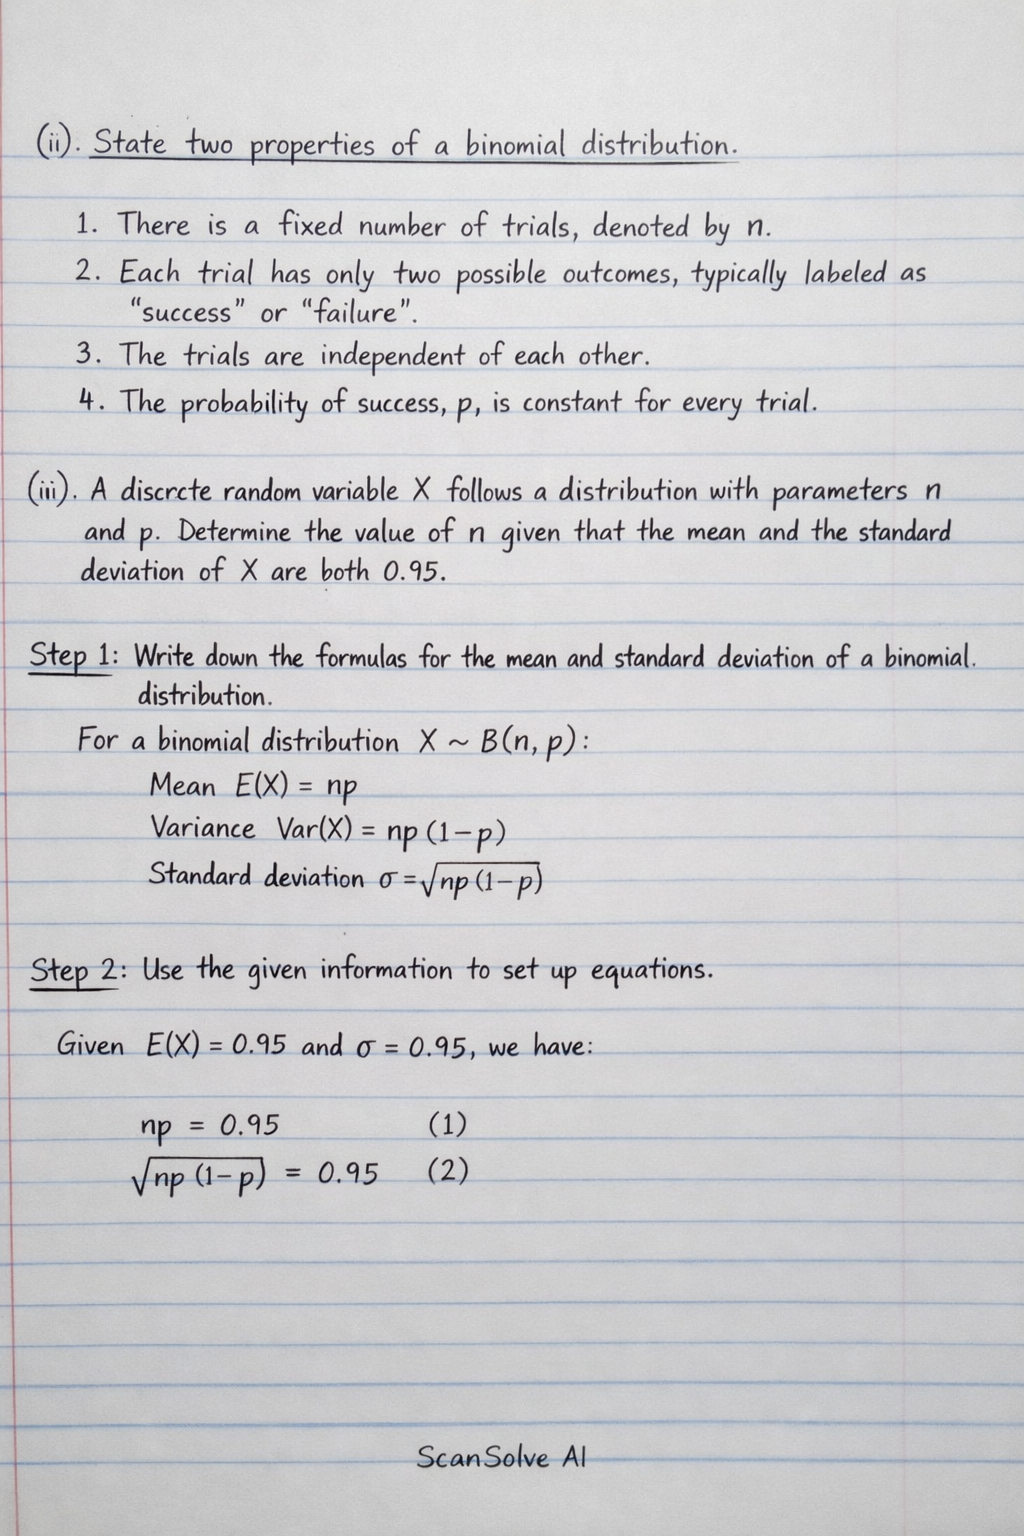 (ii). State two properties of a binomial distribution.
1. There is a fixed number of trials, denoted by n.
2. Each trial has only two possible outcomes, typically labeled as
“success” or “failure”.
3. The trials are independent of each other.
4. The probability of success, p, is constant for every trial.
(iii). A discrcte random variable X follows a distribution with parameters n
and p. Determine the value of n given that the mean and the standard
deviation of X are both 0.95.
Step 1: Write down the formulas for the mean and standard deviation of a binomial.
distribution.
For a binomial distribution X ~ B(n, p):
Mean E(X) = np
Variance Var(X) = np (1-p)
Standard deviation σ = √np (1-p)
Step 2: Use the given information to set up equations.
Given E(X) = 0.95 and σ = 0.95, we have:
np = 0.95 (1)
√np (1-p) = 0.95 (2)
ScanSolve AI